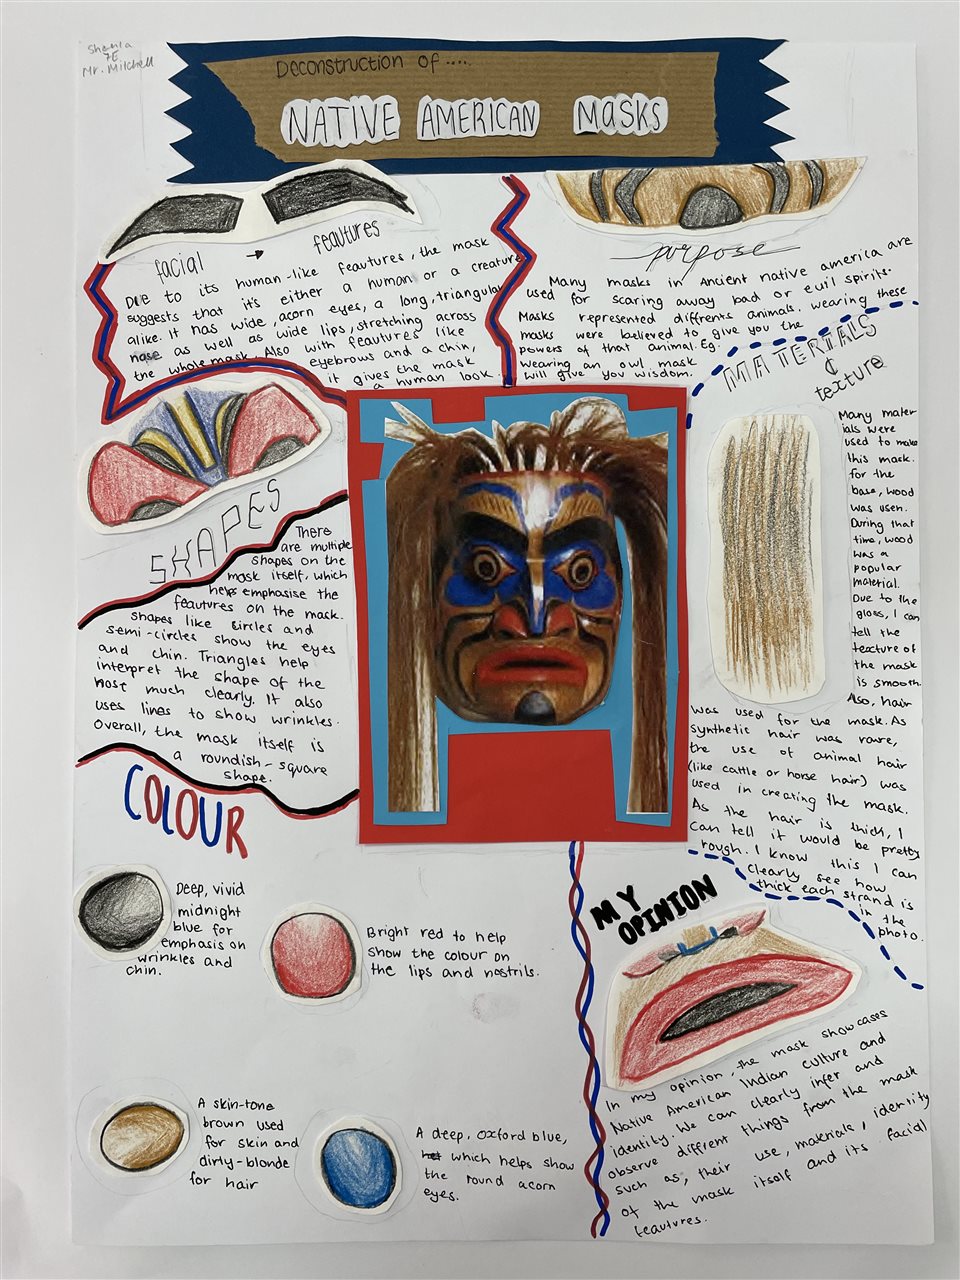 Shania
7E
Mr. Mitchell
Deconstruction of ....
NATIVE AMERICAN MASKS
facial → feautures
Due to its human-like feautures, the mask
suggests that it's either a human or a creature
alike. It has wide, acorn eyes, a long, triangular
nose as well as wide lips, stretching across
the whole mask. Also with feautures like
eyebrows and a chin,
it gives the mask
a human look.
purpose
Many masks in Ancient native america are
used for scaring away bad or evil spirits.
Masks represented diffrents animals. wearing these
masks were believed to give you the
powers of that animal. Eg.
wearing an owl mask
will give you wisdom.
MATERIALS
&
texture
Many mater-
ials were
used to make
this mask.
for the
base, wood
was usen.
During that
time, wood
was a
popular
material.
Due to the
gloss, I can
tell the
texture of
the mask
is smooth.
Also, hair
was used for the mask. As
synthetic hair was rare,
the use of animal hair
(like cattle or horse hair) was
used in creating the mask.
As the hair is thick, I
can tell it would be pretty
rough. I know this I can
clearly see how
thick each strand is
in the
photo.
SHAPES
There
are multiple
shapes on the
mask itself, which
helps emphasise the
feautures on the mask.
shapes like circles and
semi-circles show the eyes
and chin. Triangles help
interpret the shape of the
nose much clearly. It also
uses lines to show wrinkles.
Overall, the mask itself is
a roundish-square
shape.
COLOUR
Deep, vivid
midnight
blue for
emphasis on
wrinkles and
chin.
Bright red to help
show the colour on
the lips and nostrils.
A skin-tone
brown used
for skin and
dirty-blonde
for hair
A deep, Oxford blue,
which helps show
the round acorn
eyes.
MY
OPINION
In my opinion, the mask showcases
Native American Indian culture and
identity. We can clearly infer and
observe diffrent things from the mask
such as, their use, materials, identity
of the mask itself and its facial
feautures.